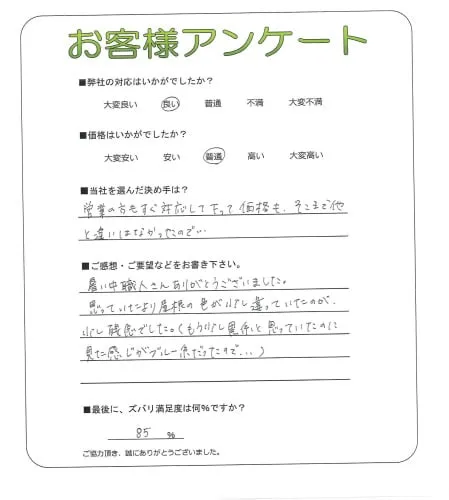 お客様アンケート
■弊社の対応はいかがでしたか？
大変良い 良い 普通 不満 大変不満
■価格はいかがでしたか？
大変安い 安い 普通 高い 大変高い
■当社を選んだ決め手は？
営業の方もすぐ対応して下って価格も、そこまで他
と違いはなかったので…
■ご感想・ご要望などをお書き下さい。
暑い中職人さんありがとうございました。
思っていたより屋根の色が少し違っていたのが、
少し残念でした。(もう少し黒系と思っていたのに
見た感じがブルー系だったので…)
■最後に、ズバリ満足度は何%ですか？
85 %
ご協力頂き、誠にありがとうございました。